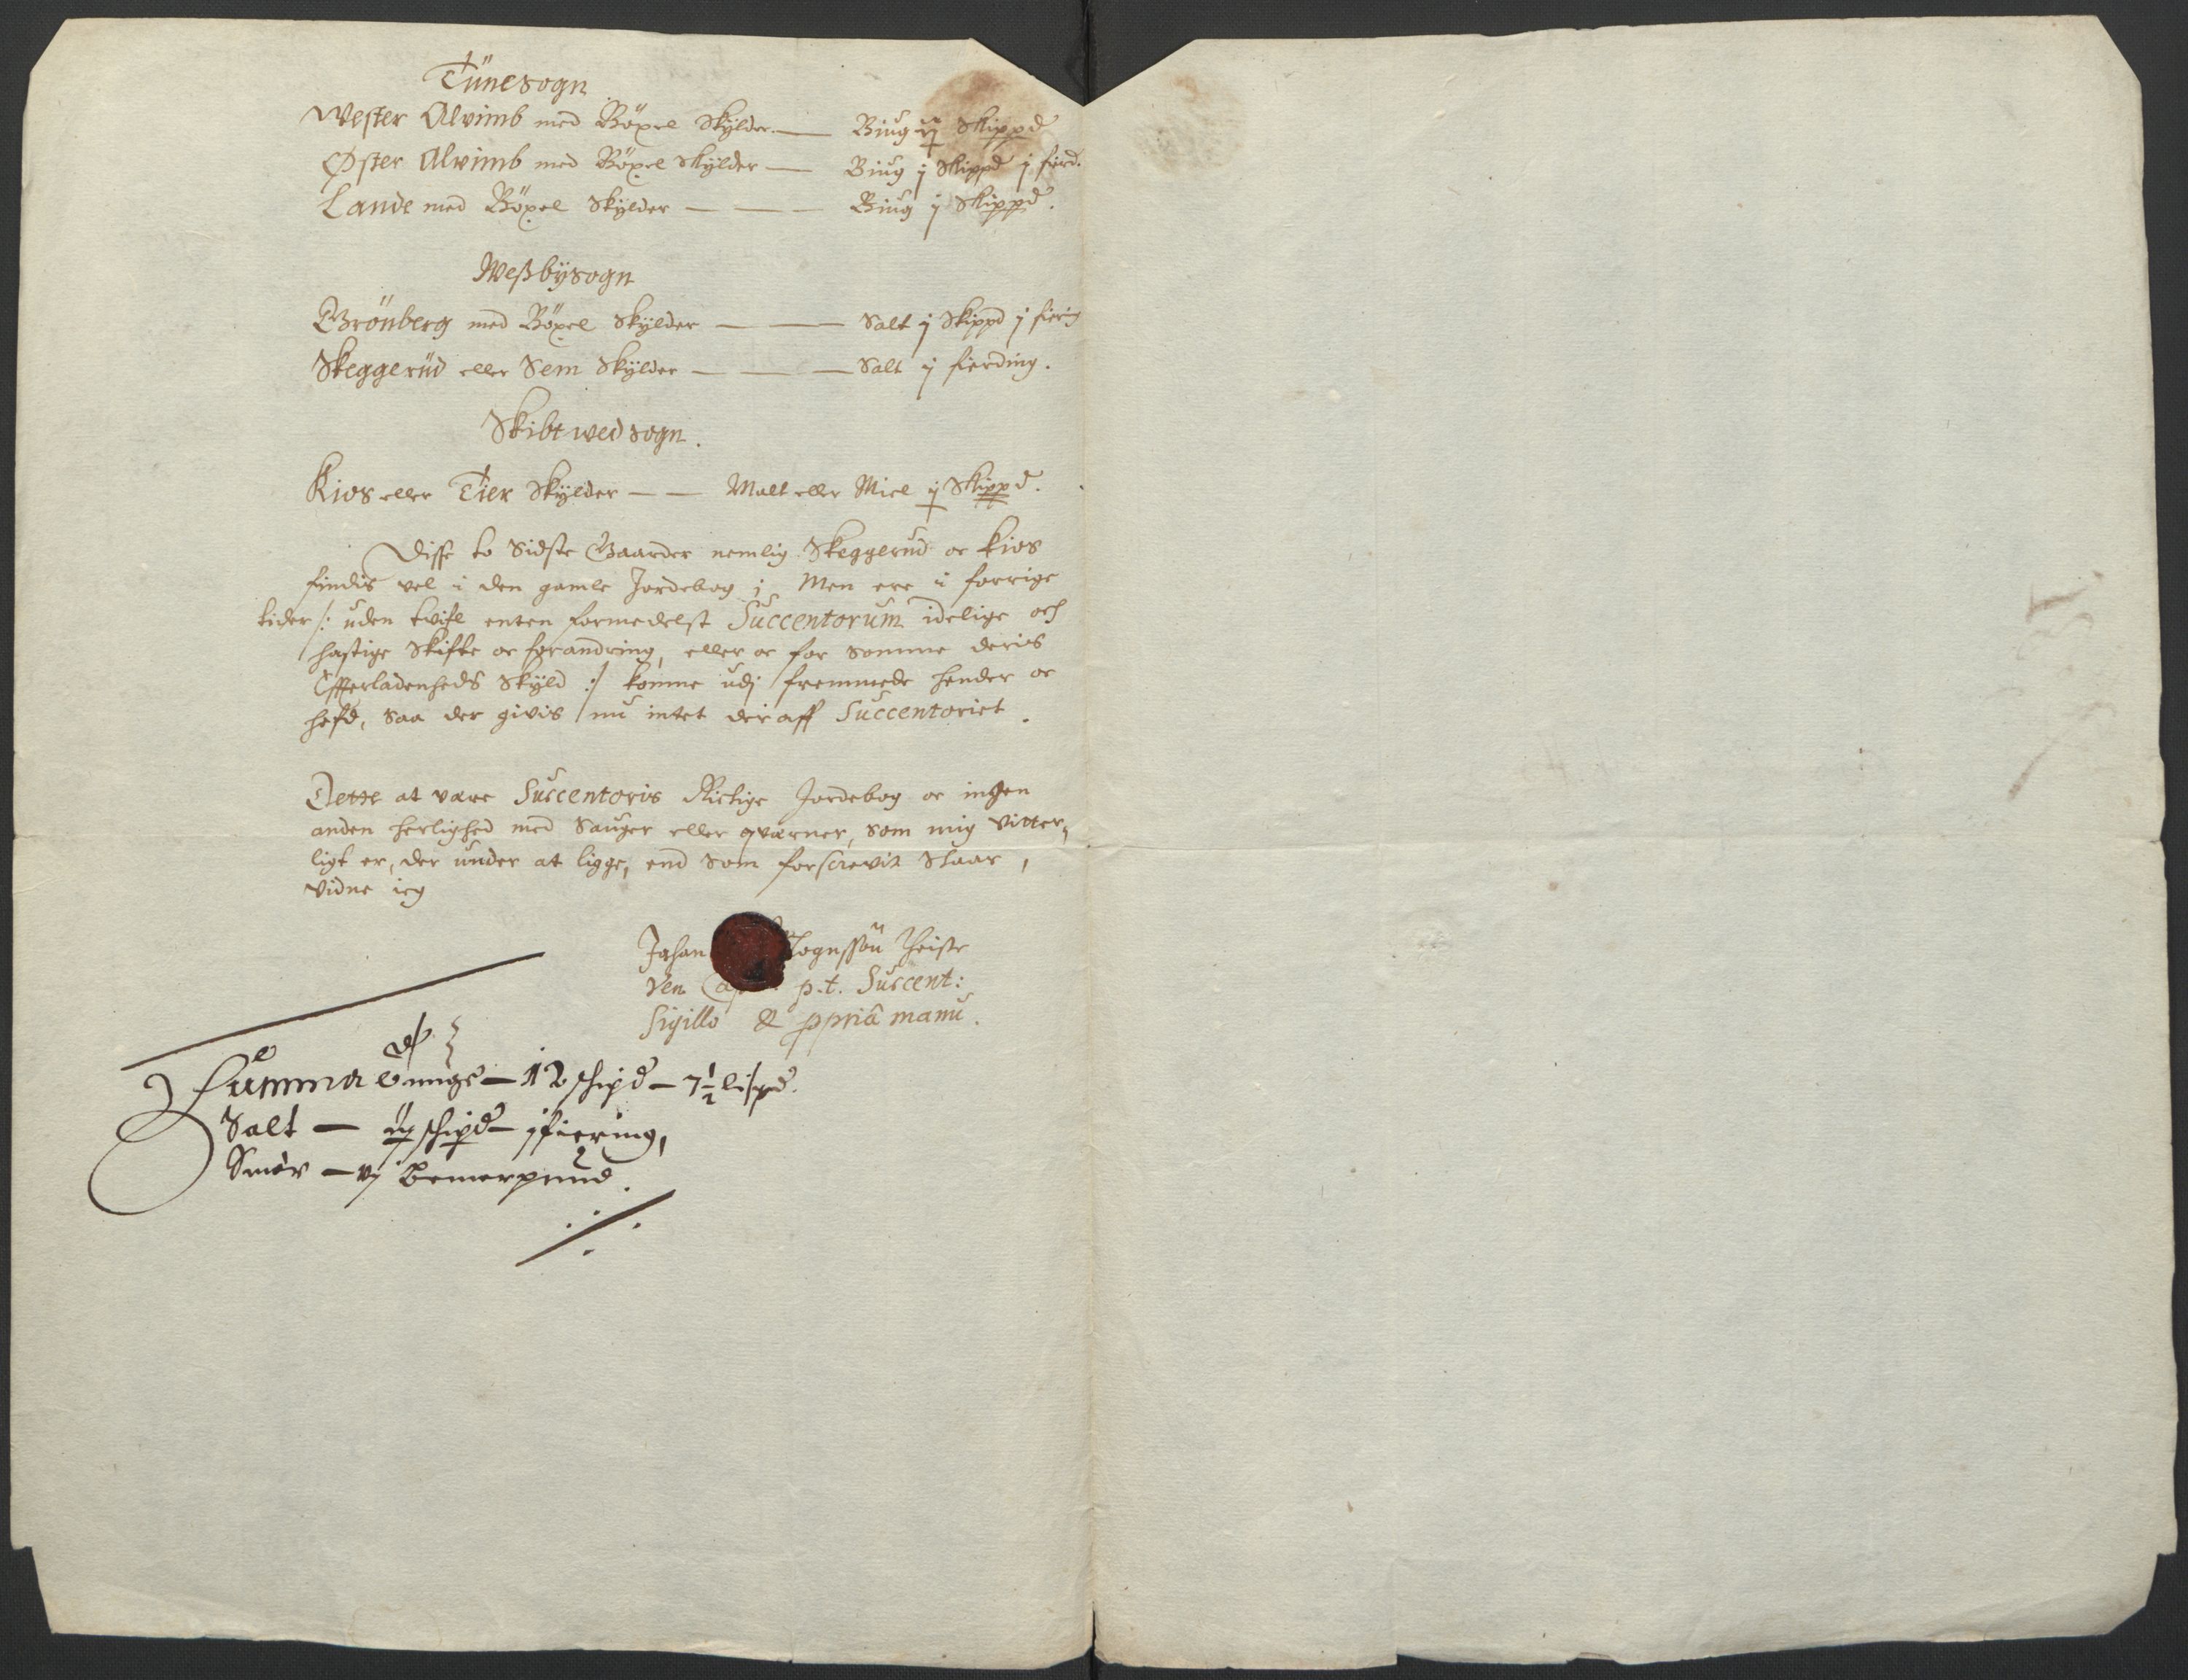 Tünesogn
Wester Alvimb med Böxel Skÿlder — Biug ij Skippd
Øster Alvimb med Böxel Skÿlder — Biug j Skippd j fierd.
Lande med Böxel Skÿlder — — — Biug j Skippd.
Weßbÿsogn
Grönberg med Böxel Skÿlder — — Salt j Skippd j fiering
Skeggerüd eller Sem Skÿlder — — — Salt j fierding.
Skibtwed sogn.
Kios eller Tier Skÿlder — — Malt eller Miel j Skippd.
Disse to Sidste Gaarder nemlig Skeggerud oc Kios
findis vel i den gamle Jordebog; Men ere i forrige
tider /: uden tvifl enten formedelst Succentorum idelige och
hastige Skifte oc forandring, eller oc for somme deris
Efferladenheds Skÿld :/ komme udj fremmede hender oc
hefd, saa der givis nu intet der aff Succentoriet.
Dette at være Succentoris Rictige Jordebog oc ingen
anden herlighed med Sauger eller qværner, som mig vitter,
ligt er, der under at ligge, end som forscrevit staar,
vidne ieg
Johan ognssön Theiste
Ven. Cap p.t. Succent:
Sigillo & ppriâ manu.
Summa biugs — 12 schipd — 7 1/2 lispd.
Salt — ij schipd — j fiering,
Smör — vj Bemerpund.